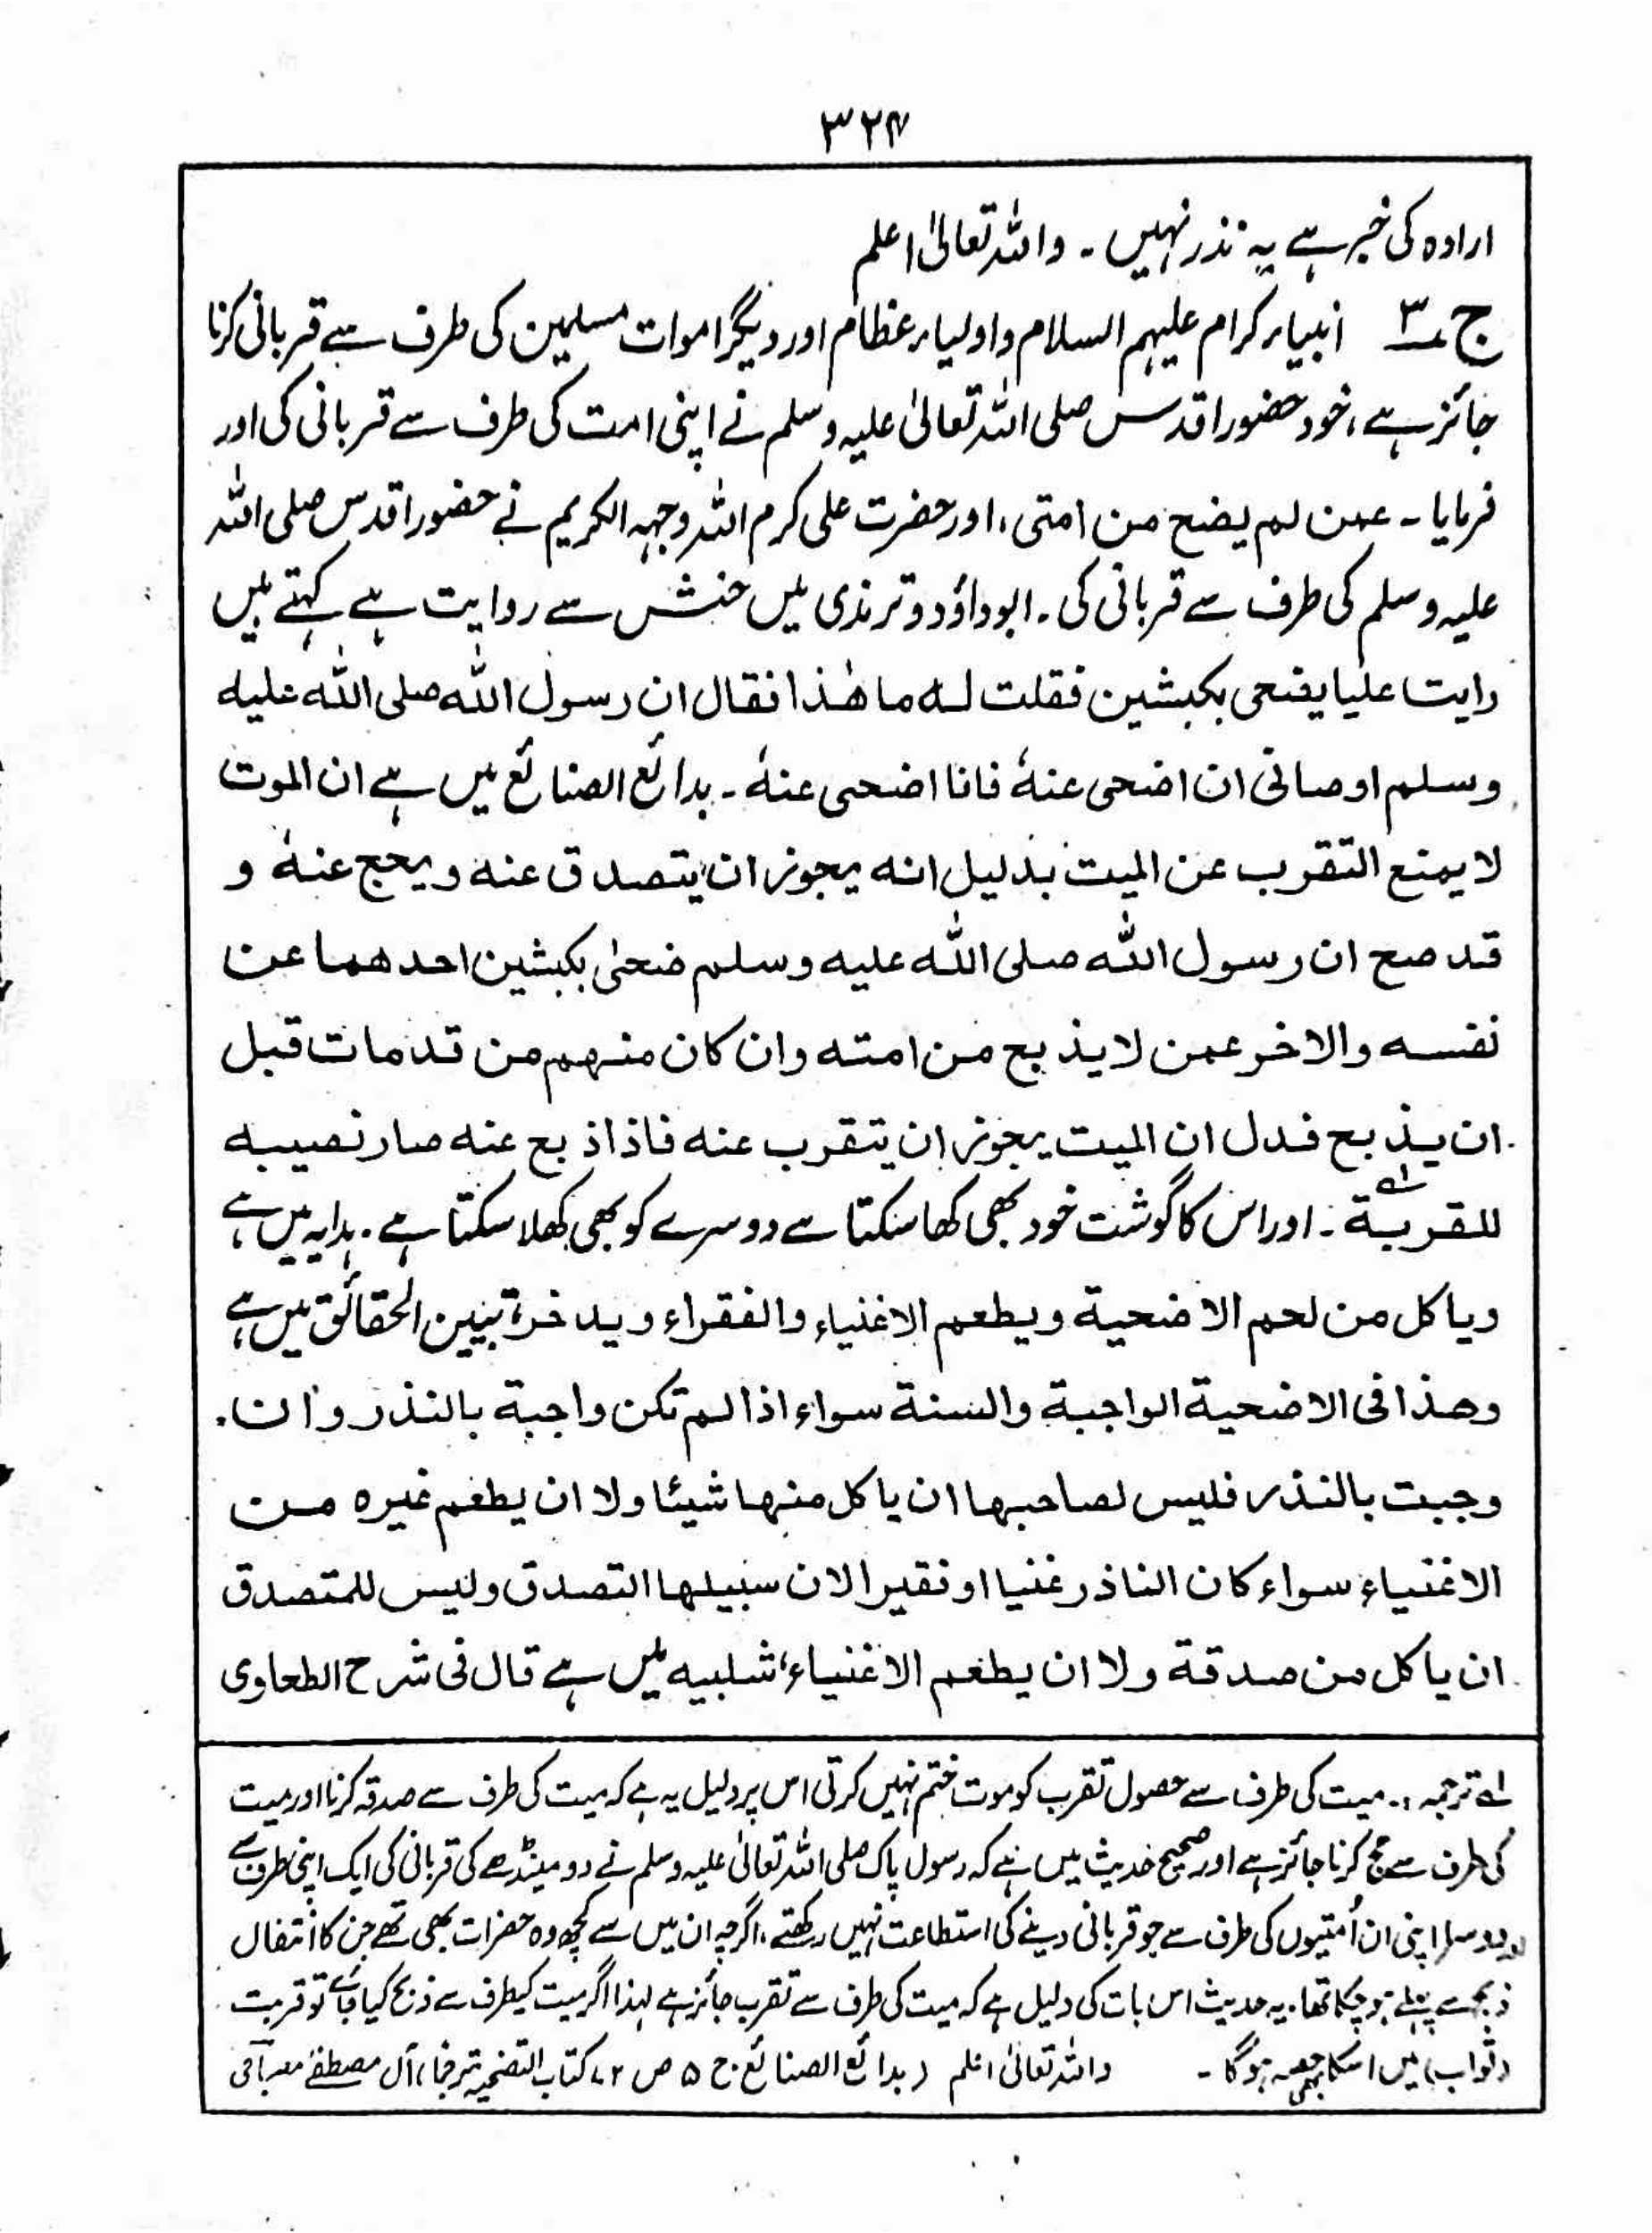 ۳۲۴
ارادہ کی خبر ہے یہ نذر نہیں ۔ واللہ تعالیٰ اعلم
ج ۳ انبیاء کرام علیہم السلام واولیاء عظام اور دیگر اموات مسلمین کی طرف سے قربانی کرنا
جائز ہے ، خود حضور اقدس صلی اللہ تعالیٰ علیہ وسلم نے اپنی امت کی طرف سے قربانی کی اور
فرمایا ۔ عمن لم یضح من امتی ، اور حضرت علی کرم اللہ وجہہ الکریم نے حضور اقدس صلی اللہ
علیہ وسلم کی طرف سے قربانی کی ۔ ابوداؤد وترمذی میں حنش سے روایت ہے کہتے ہیں
رایت علیا یضحی بکبشین فقلت لہ ما ھٰذا فقال ان رسول اللہ صلی اللہ علیہ
وسلم اوصانی ان اضحی عنہٗ فانا اضحی عنہٗ ۔ بدائع الصنائع میں ہے ان الموت
لا یمنع التقرب عن المیت بدلیل انہ یجوز ان یتصدق عنہ ویحج عنہٗ و
قد صح ان رسول اللہ صلی اللہ علیہ وسلم ضحیٰ بکبشین احدھما عن
نفسہ والاخر عمن لا یذبح من امتہ وان کان منہم من قد مات قبل
ان یذبح فدل ان المیت یجوز ان یتقرب عنہ فاذا ذبح عنہ صار نصیبہ
للقربۃ لے ۔ اور اس کا گوشت خود بھی کھا سکتا ہے دوسرے کو بھی کھلا سکتا ہے ۔ ہدایہ میں ہے ،
ویاکل من لحم الاضحیۃ ویطعم الاغنیاء والفقراء ویدخر، تبیین الحقائق میں ہے ،
وھذا فی الاضحیۃ الواجبۃ والسنۃ سواء اذا لم تکن واجبۃ بالنذر وان
وجبت بالنذر فلیس لصاحبہا ان یاکل منہا شیئا ولا ان یطعم غیرہ من
الاغنیاء سواء کان الناذر غنیا او فقیرا لان سبیلہا التصدق ولیس للمتصدق
ان یاکل من صدقۃ ولا ان یطعم الاغنیاء، شلبیہ میں ہے قال فی شرح الطحاوی
لے ترجمہ :۔ میت کی طرف سے حصول تقرب کو موت ختم نہیں کرتی اس پر دلیل یہ ہے کہ میت کی طرف سے صدقہ کرنا اور میت
کی طرف سے حج کرنا جائز ہے اور صحیح حدیث میں ہے کہ رسول پاک صلی اللہ تعالیٰ علیہ وسلم نے دو مینڈھے کی قربانی کی ایک اپنی طرف سے
اور دوسرا اپنی ان اُمتیوں کی طرف سے جو قربانی دینے کی استطاعت نہیں رکھتے ، اگرچہ ان میں سے کچھ وہ حضرات بھی تھے جن کا انتقال
ذبح سے پہلے ہو چکا تھا ۔ یہ حدیث اس بات کی دلیل ہے کہ میت کی طرف سے تقرب جائز ہے لہٰذا اگر میت کیطرف سے ذبح کیا جائے تو قربت
(ثواب) میں اسکا بھی حصہ ہوگا ۔ واللہ تعالیٰ اعلم ( بدائع الصنائع ج ۵ ص ۷۲ کتاب التضحیہ آل مصطفےٰ مصباحی